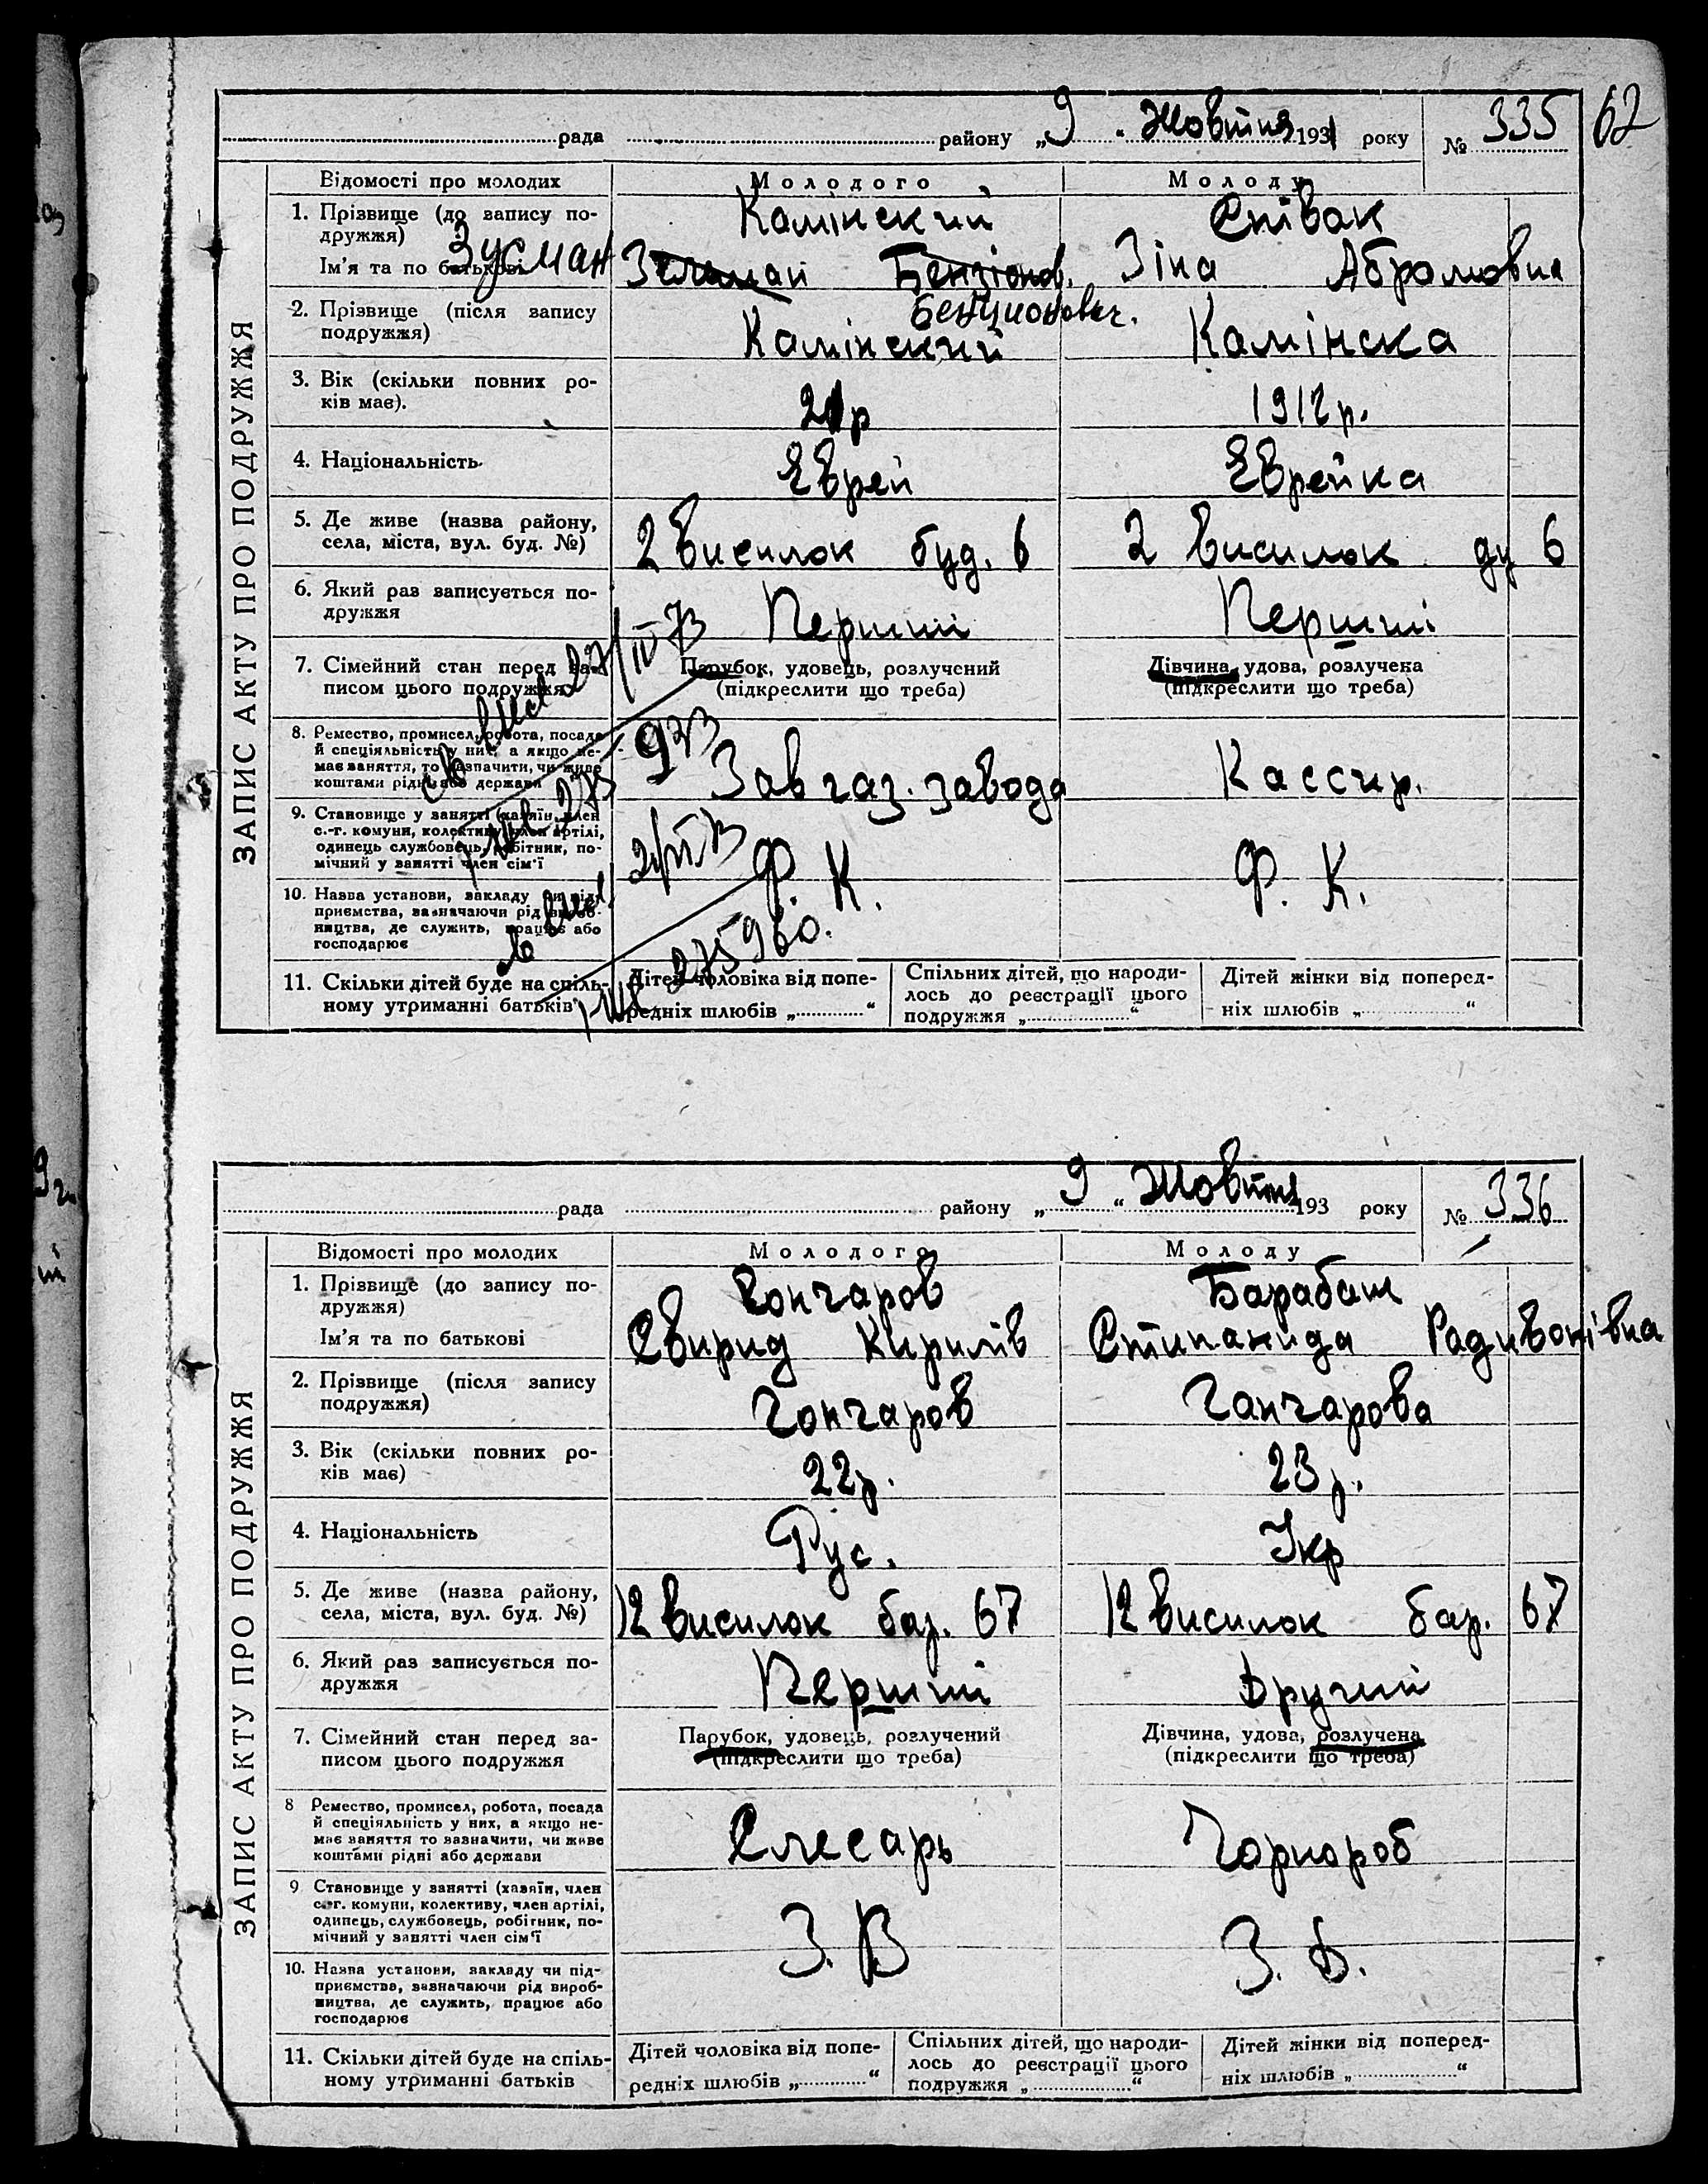 62
рада района „9 “ Жовтня 1931 року № 335
ЗАПИС АКТУ ПРО ПОДРУЖЖЯ
Відомості про молодих Молодого Молоду
1. Прізвище (до запису по-
дружжя) Камінский Співак
Ім'я та по батькові Зусман Бензіонов. Зіна Абрамовна
Бенционович.
2. Прізвище (після запису
подружжя) Камінский Камінска
3. Вік (скільки повних ро-
ків має). 21р 1912р.
4. Національність Еврей Еврейка
5. Де живе (назва району,
села, міста, вул. буд. №) 2 висилок буд. 6 2 висилок 6
6. Який раз записується по-
дружжя Перший Перший
27/IV 73
7. Сімейний стан перед за-
писом цього подружжя Парубок, удовець, розлучений Дівчина, удова, розлучена
(підкреслити що треба) (підкреслити що треба)
8. Ремество, промисел, робота, посада
й спеціяльність у них, а якщо не-
має заняття, то зазначити, чи живе
коштами рідні або держави Зав газ. завода Кассир.
9. Становище у занятті (хазяїн, член
с.-г. комуни, колективу, член артілі,
одинець службовець, робітник, по-
мічний у занятті член сім'ї Ф. К. Ф. К.
10. Назва установи, закладу чи під-
приємства, зазначаючи рід вироб-
ництва, де служить, працює або
господарює
275960.
11. Скільки дітей буде на спіль-
ному утриманні батьків Дітей чоловіка від попе-
редніх шлюбів „ “ Спільних дітей, що народи-
лось до реєстрації цього
подружжя „ “ Дітей жінки від поперед-
ніх шлюбів „ “
рада району „9 “ Жовтня 193 року № 336
ЗАПИС АКТУ ПРО ПОДРУЖЖЯ
Відомості про молодих Молодого Молоду
1. Прізвище (до запису по-
дружжя) Гончаров Барабаш
Ім'я та по батькові Свирид Кирилів Стипанида Радивонівна
2. Прізвище (після запису
подружжя) Гончаров Ганчарова
3. Вік (скільки повних ро-
ків має) 22р. 23р.
4. Національність Рус. Укр
5. Де живе (назва району,
села, міста, вул. буд. №) 12 висилок бар. 67 12 висилок бар. 67
6. Який раз записується по-
дружжя Перший Другий
7. Сімейний стан перед за-
писом цього подружжя Парубок, удовець, розлучений Дівчина, удова, розлучена
(підкреслити що треба) (підкреслити що треба)
8 Ремество, промисел, робота, посада
й спеціяльність у них, а якщо не-
має заняття то зазначити, чи живе
коштами рідні або держави Слесарь Чорнороб
9 Становище у занятті (хазяїн, член
с.-г. комуни, колективу, член артілі,
одинець, службовець, робітник, по-
мічний у занятті член сім'ї З. В З. Д.
10. Назва установи, закладу чи під-
приємства, зазначаючи рід вироб-
ництва, де служить, працює або
господарює
11. Скільки дітей буде на спіль-
ному утриманні батьків Дітей чоловіка від попе-
редніх шлюбів „ “ Спільних дітей, що народи-
лось до реєстрації цього
подружжя „ “ Дітей жінки від поперед-
ніх шлюбів „ “